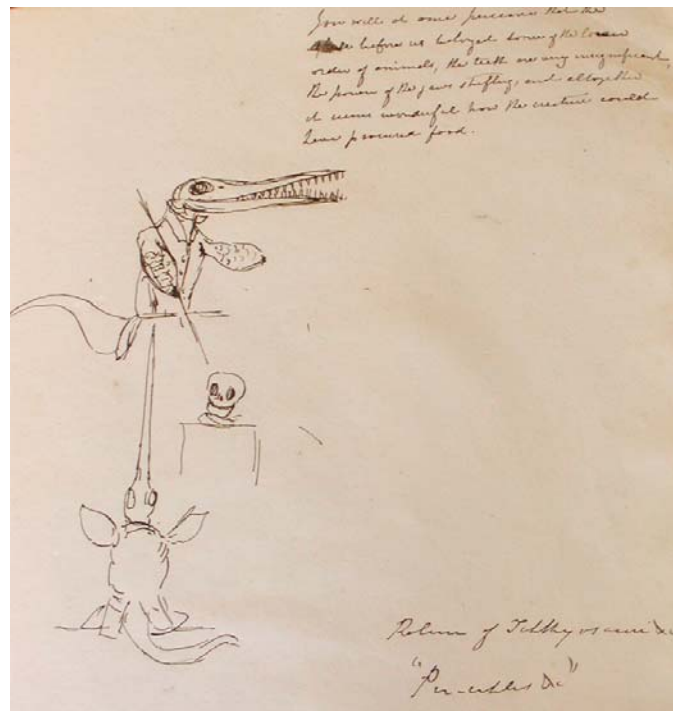 You will at once perceive that the
skull before us belonged some of the lower
order of animals, the teeth are very insignificant,
the power of the jaws trifling, and altogether
it seems wonderful how the creature could
have procured food.
Return of Ichthyosauri &c
"Principles &c"